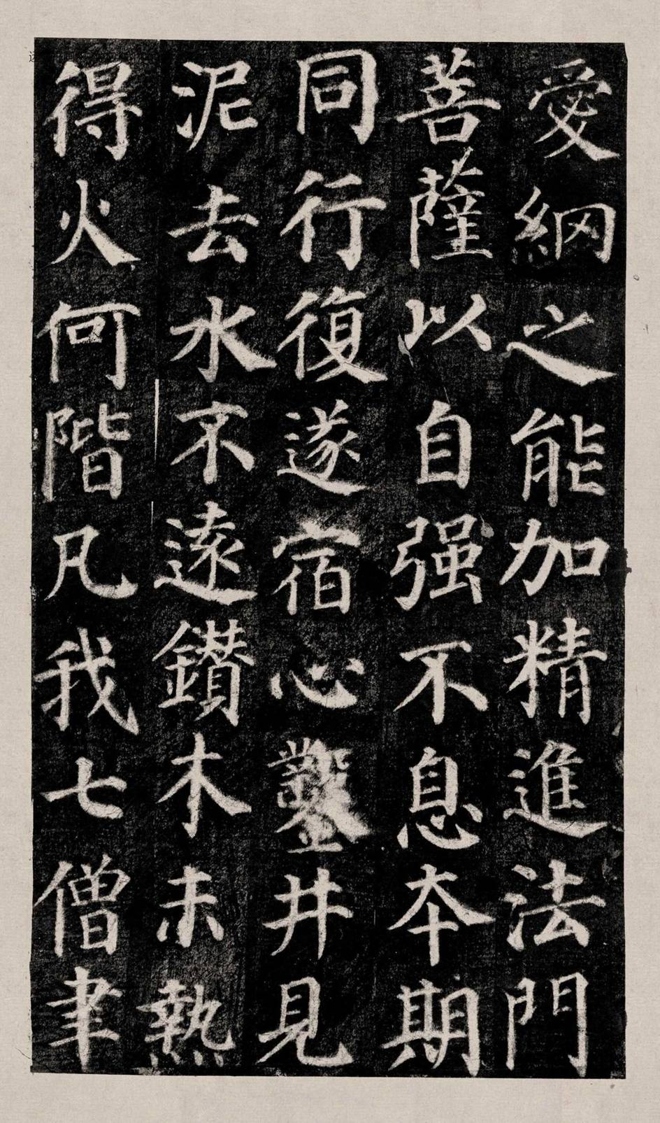 愛網之能加精進法門
菩薩以自强不息本期
同行復遂宿心鑿井見
泥去水不遠鑚木未熱
得火何階凡我七僧聿